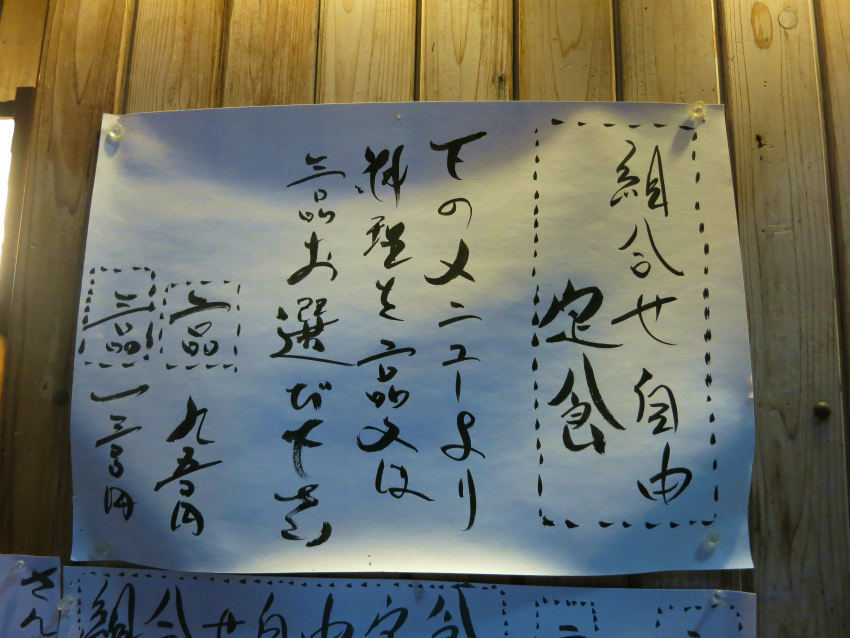 組合せ自由
定食
下のメニューより
料理を二品又は
三品お選び下さい
二品 九五〇円
三品 一三〇〇円
組合せ自由定食
さん